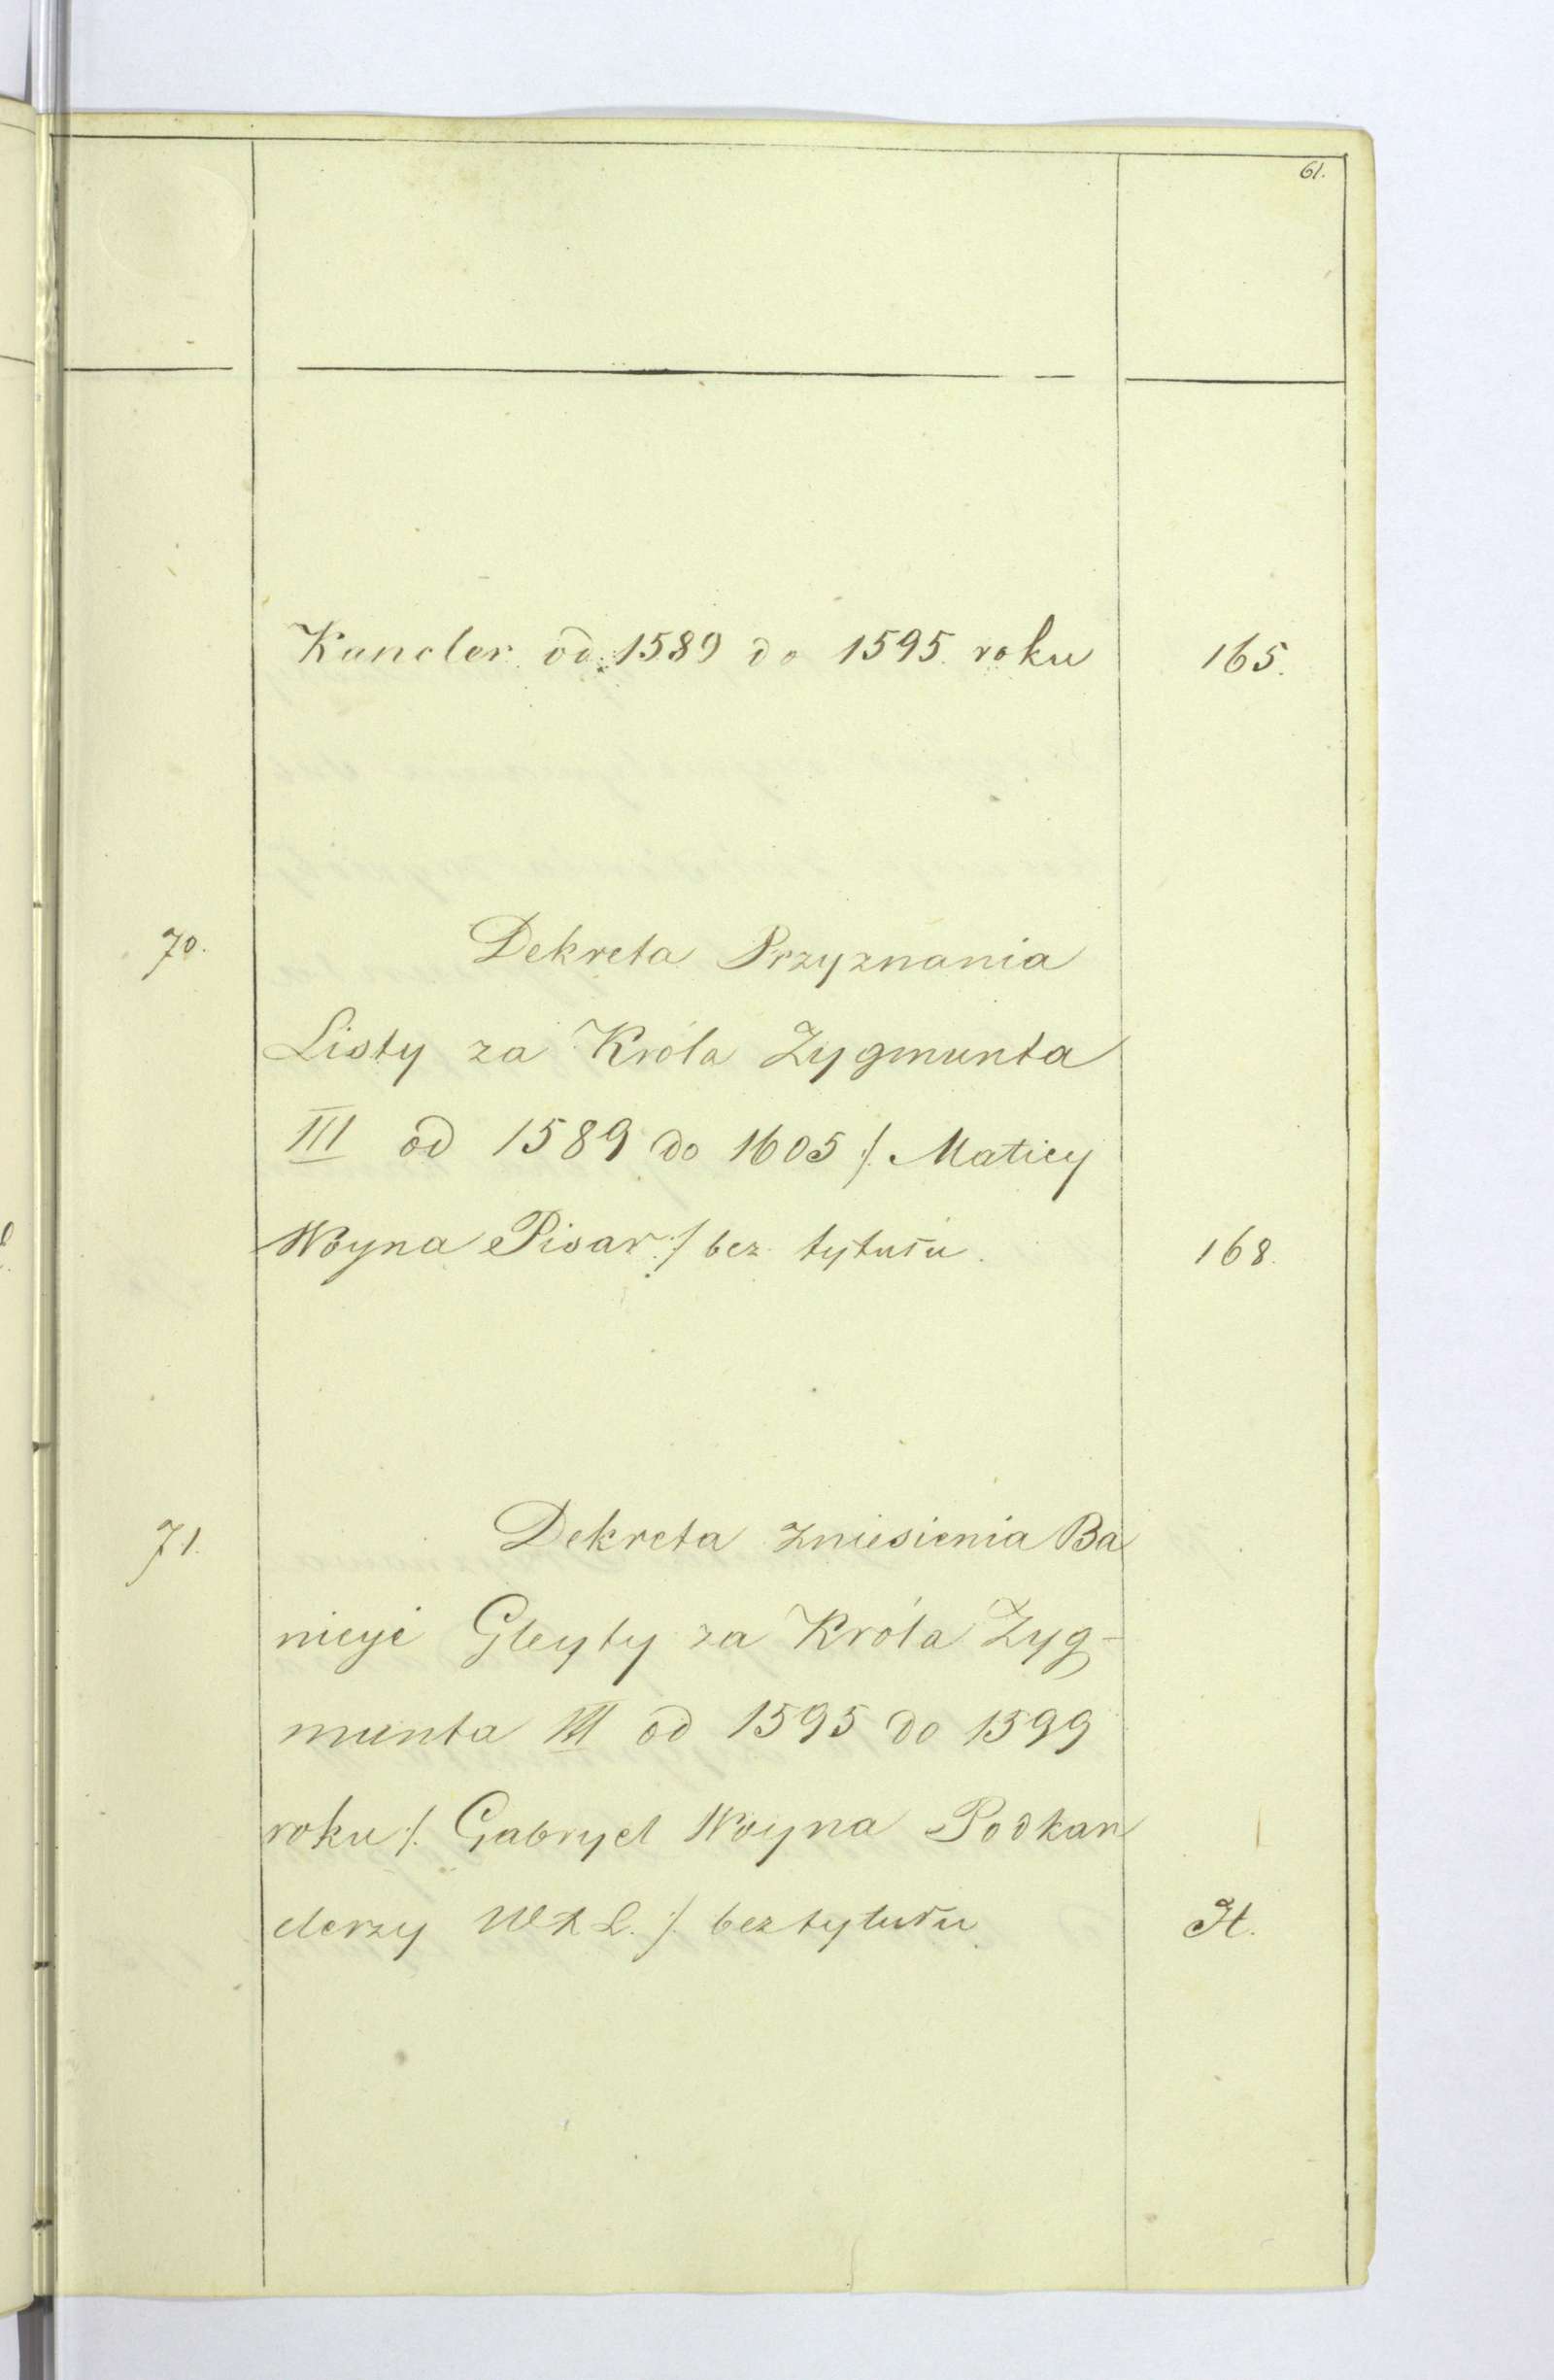 61.
Kancler od 1589 do 1595 roku 165.
70. Dekreta Przyznania
Listy za Króla Zygmunta
III od 1589 do 1605 /: Maticy
Woyna Pisar :/ bez tytułu. 168.
71. Dekreta Zniesienia Ba
nicyi Gleyty za Króla Zyg-
munta III od 1595 do 1599
roku /: Gabryel Woyna Podkan
clerzy WXL. :/ bez tytułu